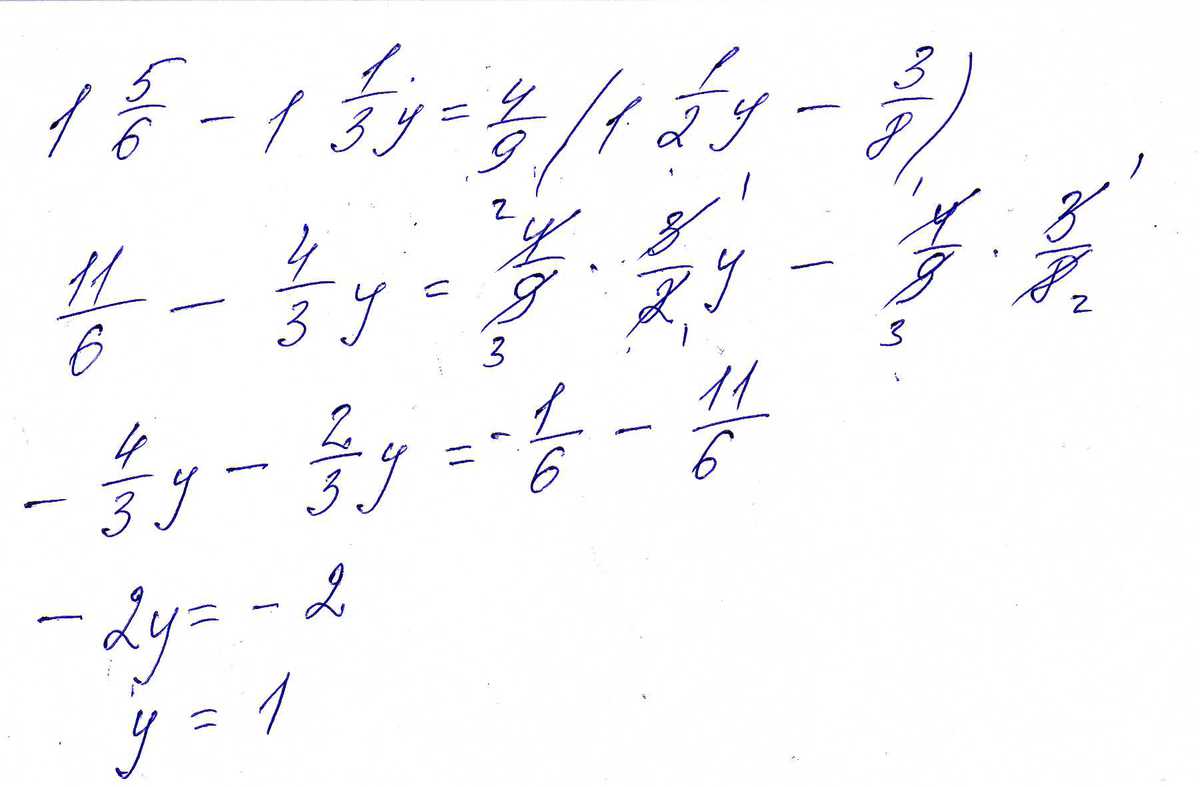 1 5/6 - 1 1/3 y = 4/9 (1 1/2 y - 3/8)
11/6 - 4/3 y = 4/9 · 3/2 y - 4/9 · 3/8
2 1 1 1
3 1 3 2
- 4/3 y - 2/3 y = - 1/6 - 11/6
- 2y = - 2
y = 1